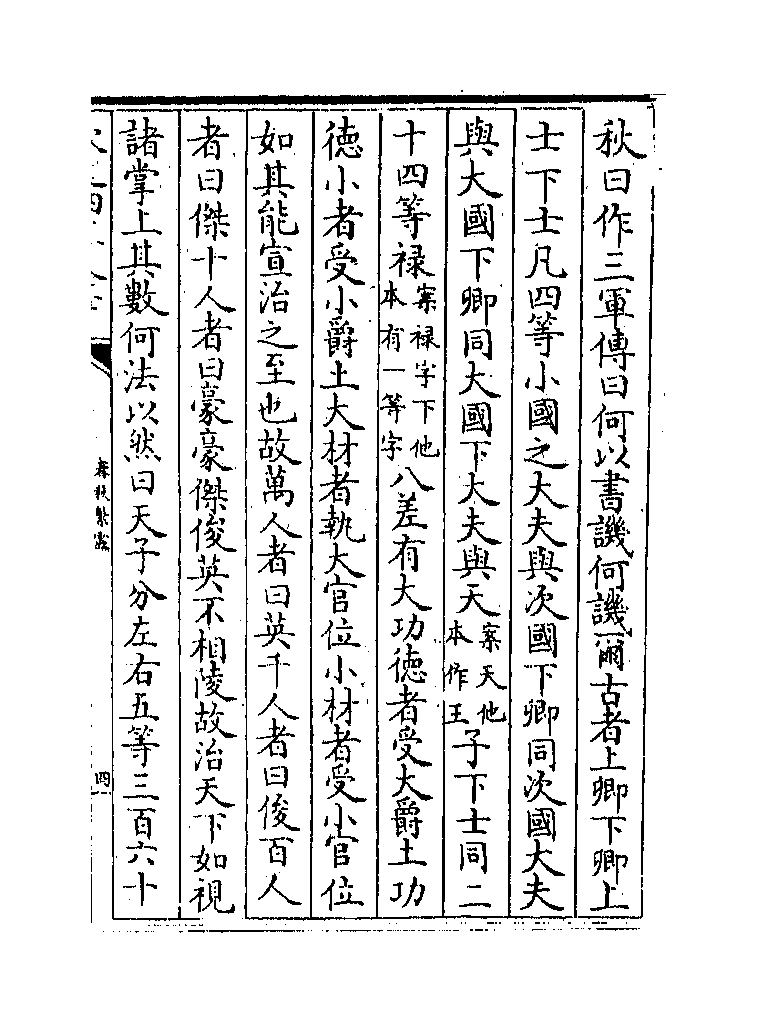 秋曰作三軍傳曰何以書譏何譏爾古者上卿下卿上
士下士凡四等小國之大夫與次國下卿同次國大夫
與大國下卿同大國下大夫與天案天他本作王子下士同二
十四等禄案禄字下他本有一等字八差有大功徳者受大爵土功
徳小者受小爵土大材者執大官位小材者受小官位
如其能宣治之至也故萬人者曰英千人者曰俊百人
者曰傑十人者曰豪豪傑俊英不相陵故治天下如視
諸掌上其數何法以然曰天子分左右五等三百六十
春秋繁露
四